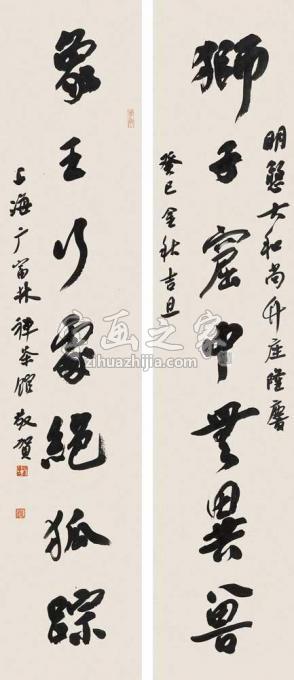 明慧大和尚升座隆慶
獅子窟中無異兽
癸巳金秋吉旦
象王行處絕狐踪
上海广富林禅茶館敬賀
字画之家
zihuazhijia.com